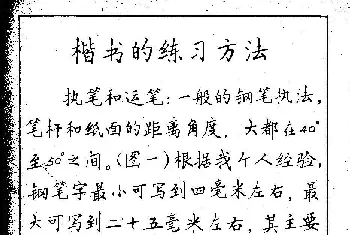 楷书的练习方法
执笔和运笔：一般的钢笔执法，
笔杆和纸面的距离角度，大都在40°
至50°之间。（图一）根据我个人经验，
钢笔字最小可写到四毫米左右，最
大可写到二十五毫米左右，其主要